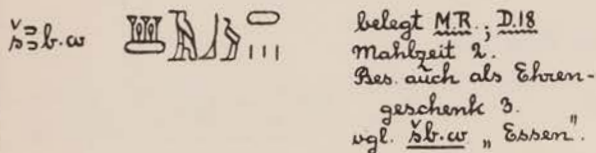 šꜣb.w 𓆷𓄿𓃀𓅱𓏥 belegt M.R.; D.18
Mahlzeit 2.
Bes. auch als Ehren-
geschenk 3.
vgl. šb.w „Essen".